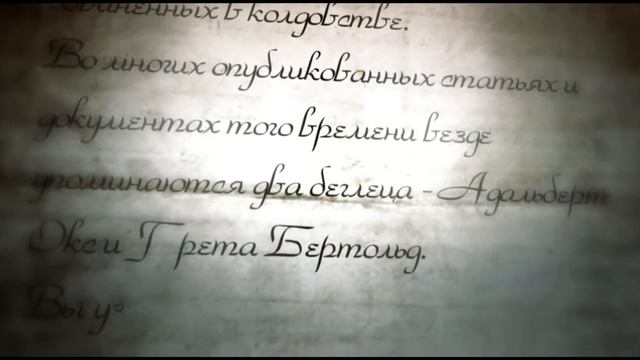 в колдовстве.
Во многих опубликованных статьях и
документах того времени везде
упоминаются два беглеца - Адальберт
Окс и Грета Бертольд.
Вы